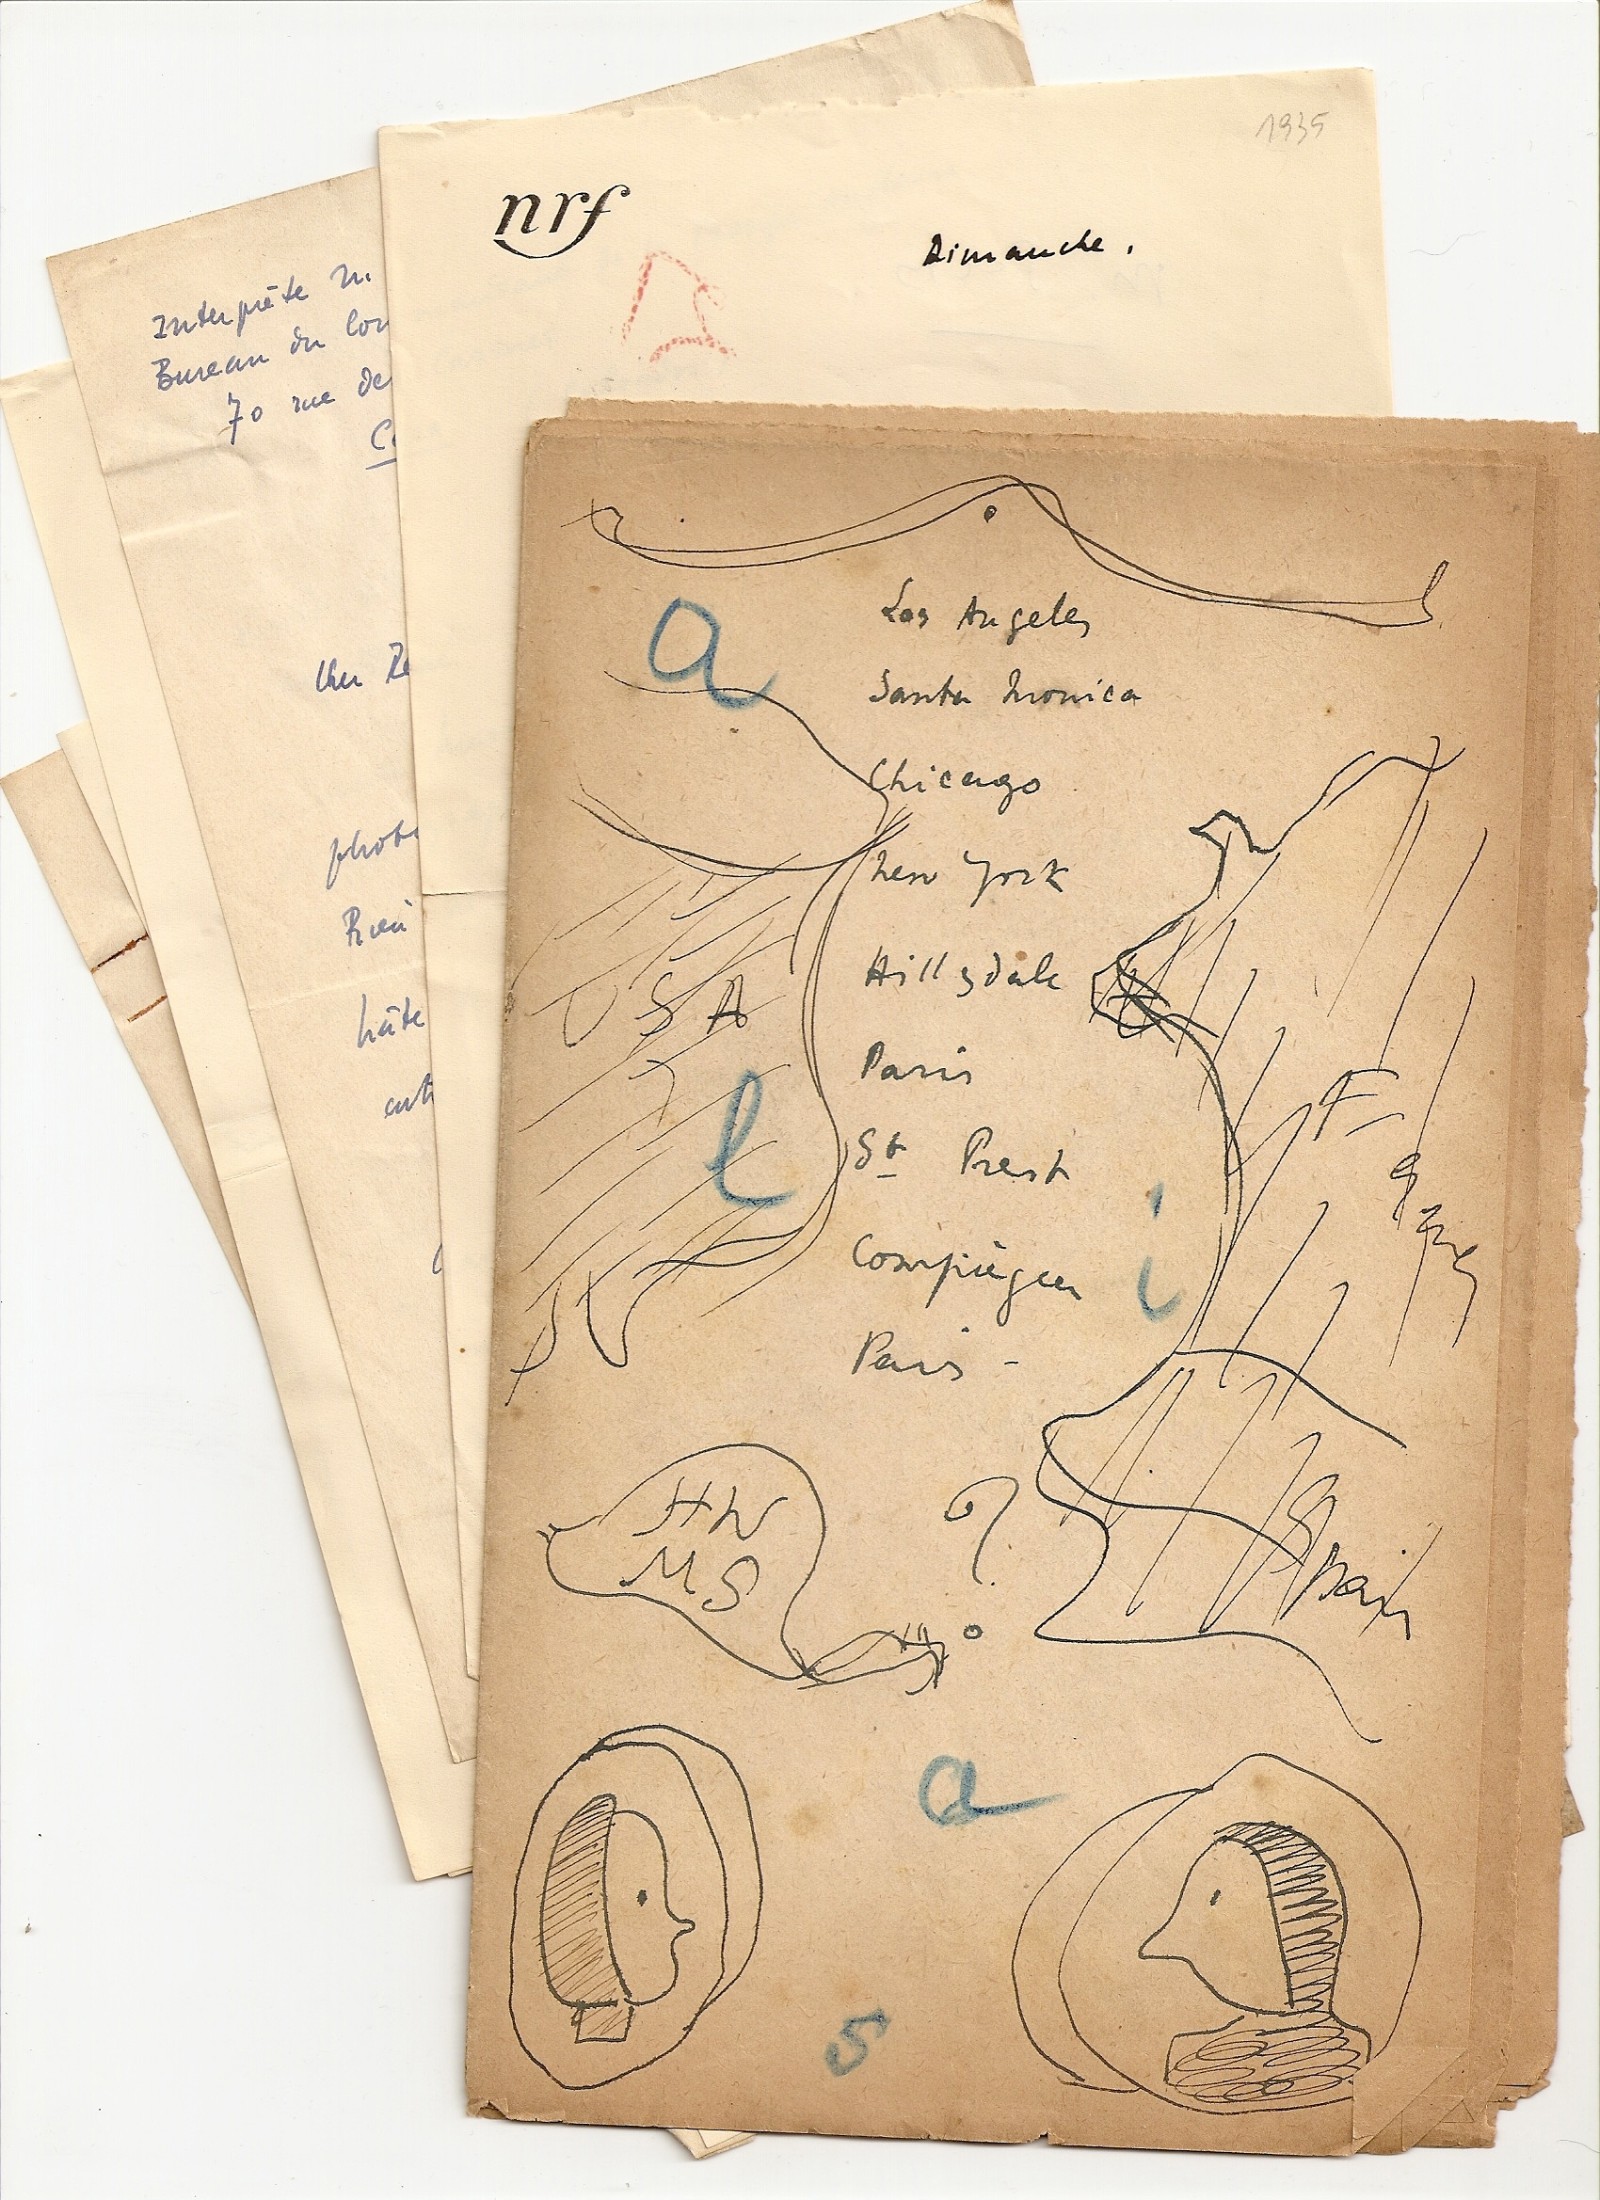 1935
nrf
Dimanche.
Interprète
Bureau du
70 rue de
Cher
hâte
a
Los Angeles
Santa Monica
Chicago
New York
Hillsdale
USA
Paris
l
St Prest
i
Compiègne
Paris -
F
Spain
HW
MS
?
a
s